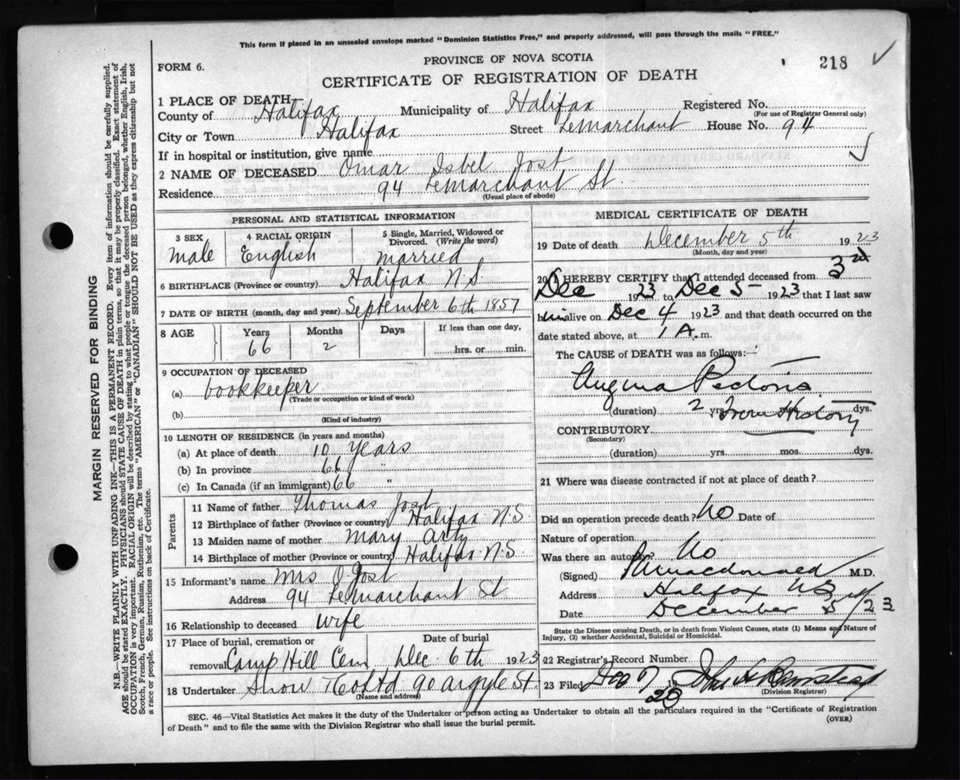 This form if placed in an unsealed envelope marked "Dominion Statistics Free," and properly addressed, will pass through the mails "FREE."
PROVINCE OF NOVA SCOTIA
FORM 6.
218
CERTIFICATE OF REGISTRATION OF DEATH
1 PLACE OF DEATH
County of Halifax Municipality of Halifax Registered No.
(For use of Registrar General only)
City or Town Halifax Street LeMarchant House No. 94
If in hospital or institution, give name
2 NAME OF DECEASED Omar Isbel Jost
Residence 94 LeMarchant St.
(Usual place of abode)
PERSONAL AND STATISTICAL INFORMATION
3 SEX 4 RACIAL ORIGIN 5 Single, Married, Widowed or Divorced. (Write the word)
Male English Married
6 BIRTHPLACE (Province or country) Halifax N.S
7 DATE OF BIRTH (month, day and year) September 6th 1857
8 AGE Years Months Days If less than one day,
66 2 hrs. or min.
9 OCCUPATION OF DECEASED
(a) bookkeeper
(Trade or occupation or kind of work)
(b)
(Kind of industry)
10 LENGTH OF RESIDENCE (in years and months)
(a) At place of death 10 years
(b) In province 66 "
(c) In Canada (if an immigrant) 66 "
Parents
11 Name of father Thomas Jost
12 Birthplace of father (Province or country) Halifax N.S.
13 Maiden name of mother Mary
14 Birthplace of mother (Province or country) Halifax N.S.
15 Informant's name Mrs O Jost
Address 94 LeMarchant St
16 Relationship to deceased Wife
17 Place of burial, cremation or removal Camp Hill Cem Date of burial Dec. 6th 1923
18 Undertaker Snow & Co Ltd 90 Argyle St.
(Address)
MEDICAL CERTIFICATE OF DEATH
19 Date of death December 5th 1923
(Month, day and year)
20 I HEREBY CERTIFY that I attended deceased from 3rd
Dec 1923 to Dec 5 1923 that I last saw
him alive on Dec 4 1923 and that death occurred on the
date stated above, at 1 A. m.
The CAUSE of DEATH was as follows:—
Angina Pectoris
(duration) 2 yrs. From History dys.
CONTRIBUTORY
(Secondary)
(duration) yrs. mos. dys.
21 Where was disease contracted if not at place of death?
Did an operation precede death? No Date of
Nature of operation
Was there an autopsy? No
(Signed) Macdonald M.D.
Address Halifax NS
Date December 5 23
State the Disease causing Death, or in death from Violent Causes, state (1) Means and Nature of Injury, (2) whether Accidental, Suicidal or Homicidal.
22 Registrar's Record Number
23 Filed Dec 7 23
(Division Registrar)
SEC. 46—Vital Statistics Act makes it the duty of the Undertaker or person acting as Undertaker to obtain all the particulars required in the "Certificate of Registration
of Death" and to file the same with the Division Registrar who shall issue the burial permit.
(OVER)
MARGIN RESERVED FOR BINDING
N.B.—WRITE PLAINLY WITH UNFADING INK—THIS IS A PERMANENT RECORD. Every item of information should be carefully supplied.
AGE should be stated EXACTLY. PHYSICIANS should STATE CAUSE OF DEATH in plain terms, so that it may be properly classified. Exact statement of
OCCUPATION is very important. RACIAL ORIGIN will be described by stating to what people or tongue the deceased person belonged, whether English, Irish,
Scotch, French, German, Russian, Ruthenian, etc. The terms "AMERICAN" or "CANADIAN" SHOULD NOT BE USED as they express citizenship but not
a race or people. See instructions on back of Certificate.